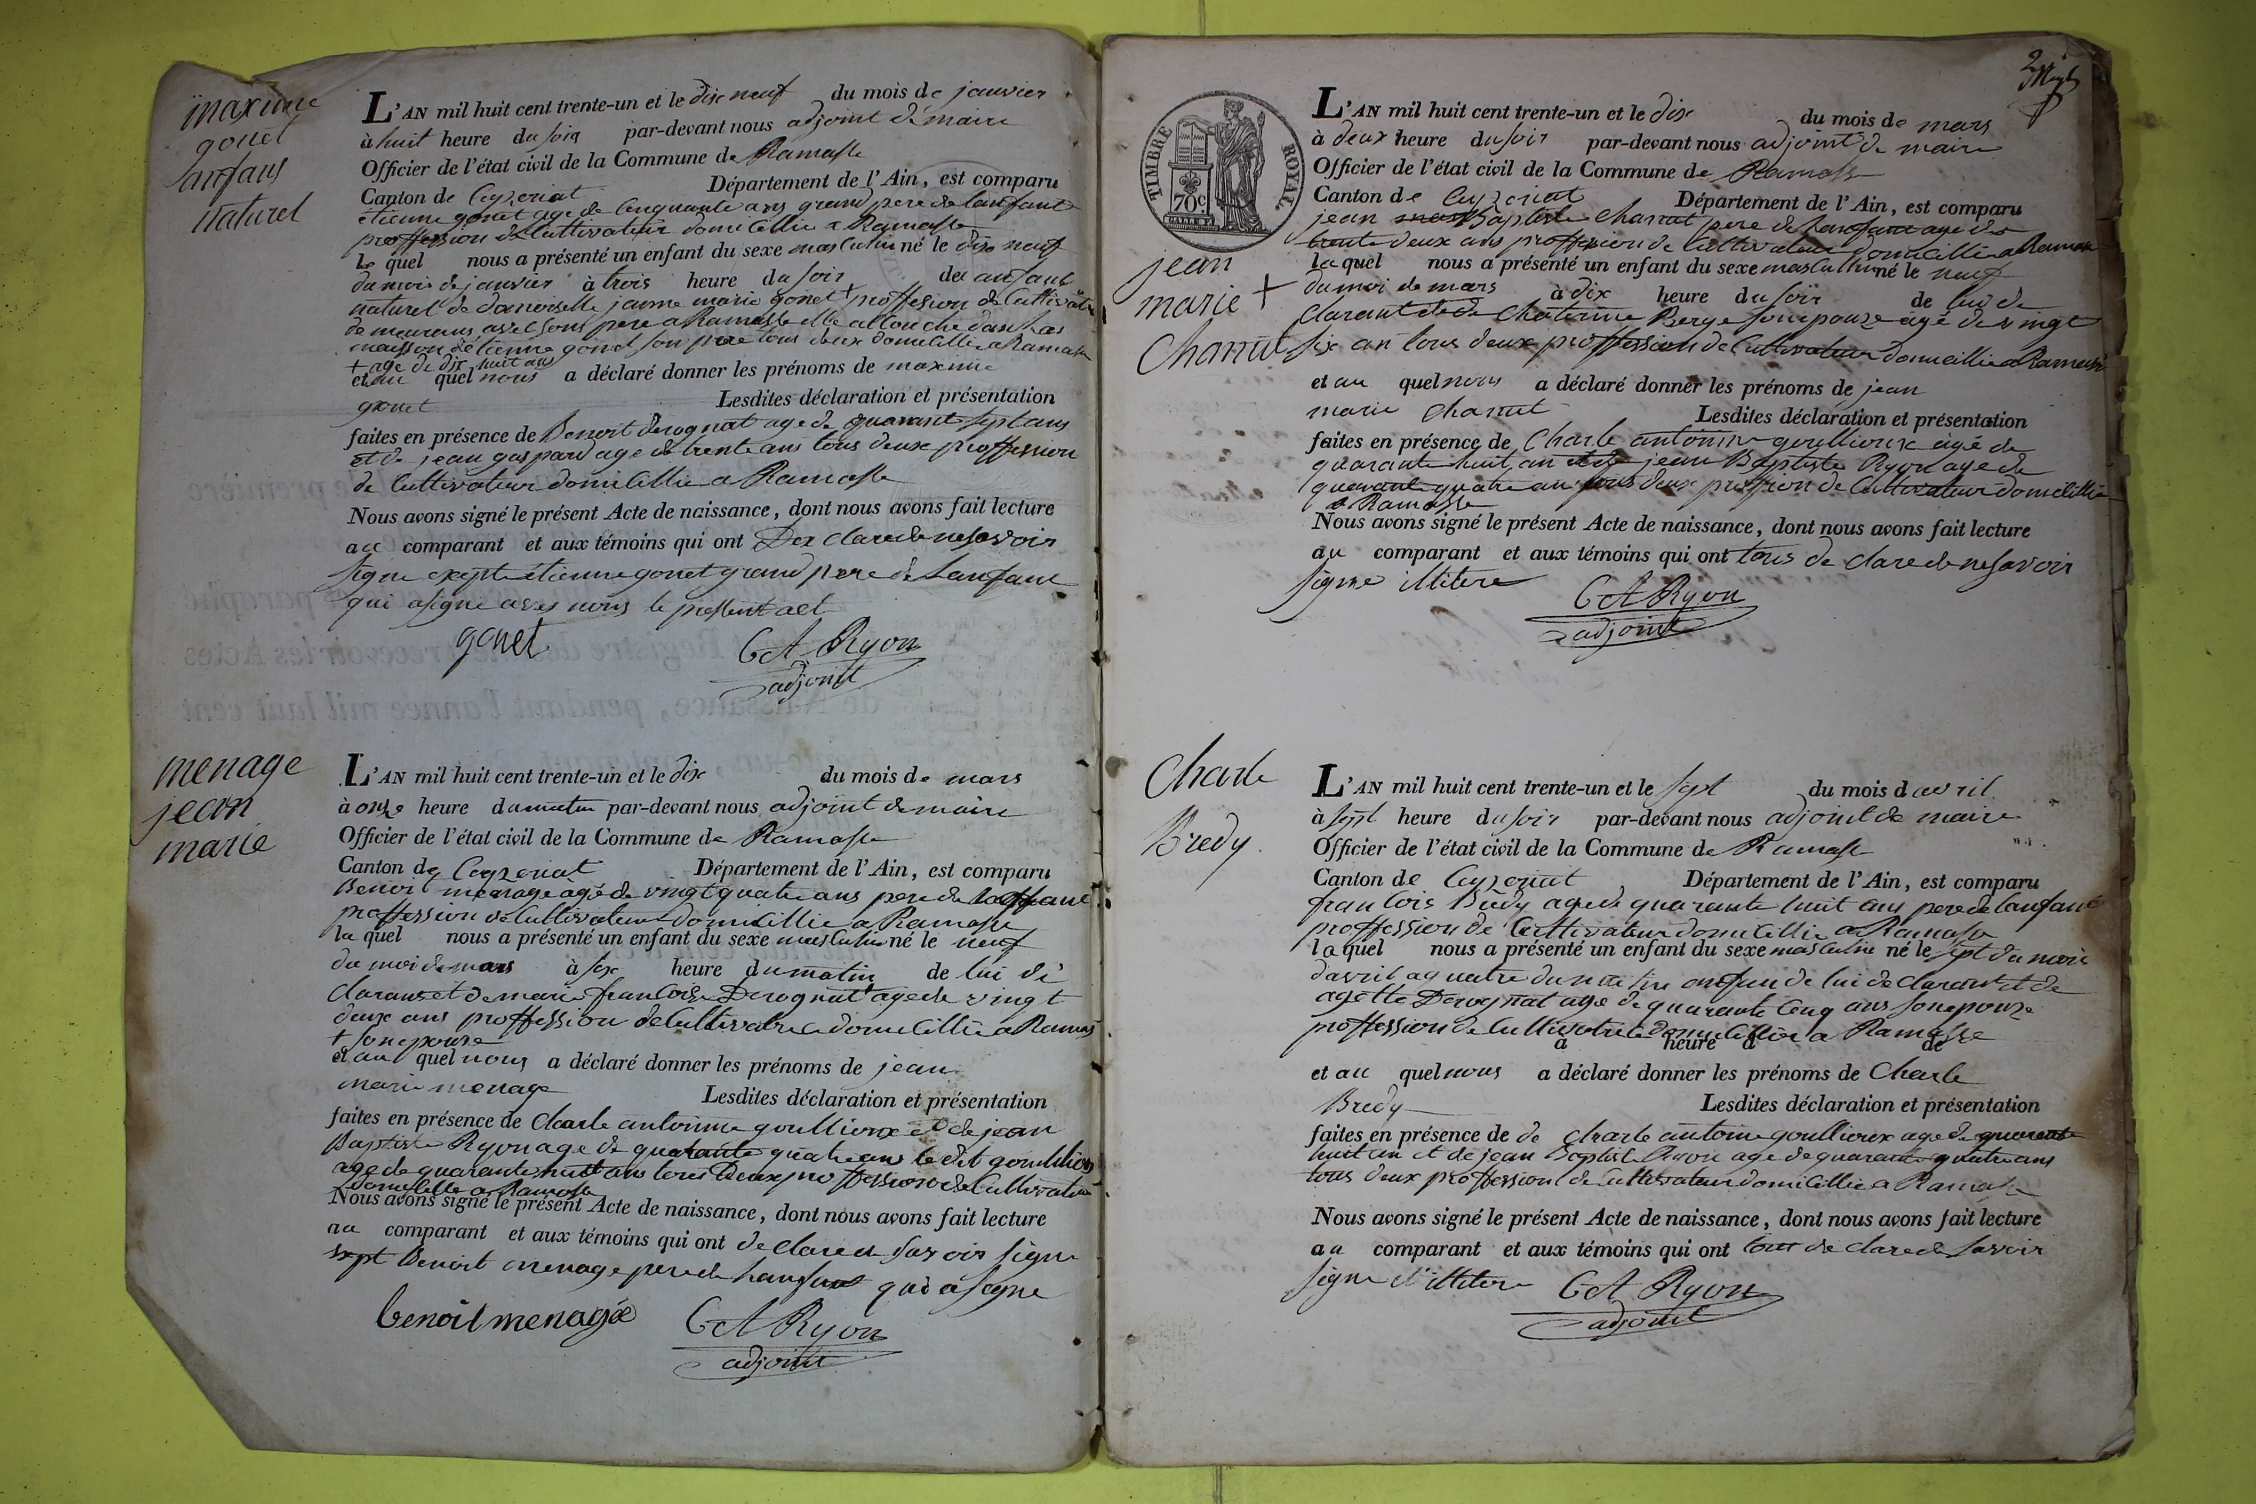 maxime
gonet
anfans
naturel
L'AN mil huit cent trente-un et le dix neuf du mois de janvier
à huit heure du soir par-devant nous adjoint de maire
Officier de l'état civil de la Commune de Ramasse
Canton de Ceyzeriat Département de l'Ain, est comparu
etienne gonet age de cinquante ans grand pere de lanfant
proffession de Cultivateur domicillie a Ramasse
Le quel nous a présenté un enfant du sexe masculin né le dix neuf
du mois de janvier à trois heure du soir de anfant
naturel de damoiselle jeanne marie gonet + proffession de Cultivatr
de meurans avec sons pere a Ramasse elle a Couche dans las
maisson detienne gonet son pere tous deux domicillie a Ramasse
+ age de dix huit ans
et au quel nous a déclaré donner les prénoms de maxime
gonet Lesdites déclaration et présentation
faites en présence de Benoit derognat age de quarant sept ans
et de jean gaspard age de trente ans tous deux proffession
de Cultivateur domicillie a Ramasse
Nous avons signé le présent Acte de naissance, dont nous avons fait lecture
au comparant et aux témoins qui ont Dex clare de ne savoir
signe exepte étienne gonet grand pere de Lanfant
qui a signe aves nous le pressent act
gonet CA Ryon
adjoint
menage
jean
marie
L'AN mil huit cent trente-un et le dix du mois de mars
à onze heure du matin par-devant nous adjoint de maire
Officier de l'état civil de la Commune de Ramasse
Canton de Ceyzeriat Département de l'Ain, est comparu
Benoit menage agé de vingt quatre ans pere de laffant
proffession de Cultivateur domicillie a Ramasse
la quel nous a présenté un enfant du sexe masculin né le neuf
du moi de mars à six heure du matin de lui dé
clarans et de marie francoise Derognat age de vingt
deux ans proffession de Cultivatrice domicillie a Ramas
+ son epouze
et au quel nous a déclaré donner les prénoms de jean
marie menage Lesdites déclaration et présentation
faites en présence de Charle antoinne goullioux et de jean
Baptiste Ryon age de quarante quatre ans le dit goullioux
age de quarante huit ans tous deux proffession de Cultivateur
domicillie a Ramasse
Nous avons signé le présent Acte de naissance, dont nous avons fait lecture
au comparant et aux témoins qui ont de clare de savoir signe
sept Benoit menage pere de lanfant qui a signe
benoit menage CA Ryon
adjoint
TIMBRE ROYAL
70c
L'AN mil huit cent trente-un et le dix du mois de mars
à deux heure du soir par-devant nous adjoint de maire
Officier de l'état civil de la Commune de Ramasse
Canton de Ceyzeriat Département de l'Ain, est comparu
jean Baptiste Chanut pere de lanfant age de
trente deux ans proffession de Cultivateur domicillie a Ramasse
la quel nous a présenté un enfant du sexe masculin né le neuf
du moi de mars à dix heure du soir de lui de
clarant et de Chaterine Berge son epouze agé de vingt
six an tous deux proffession de Cultivateur domicillie a Ramasse
et au quel nous a déclaré donner les prénoms de jean
marie Chanut Lesdites déclaration et présentation
faites en présence de Charle antoinne goullioux agé de
quarante huit an et de jean Baptiste Ryon age de
quarante quatre an tous deux proffsion de Cultivateur domicillie
a Ramasse
Nous avons signé le présent Acte de naissance, dont nous avons fait lecture
au comparant et aux témoins qui ont tous de clare de ne savoir
signe illitere
CA Ryon
adjoint
jean
marie +
Chanut
Charle
Bredy
L'AN mil huit cent trente-un et le sept du mois d avril
à sept heure du soir par-devant nous adjoint de maire
Officier de l'état civil de la Commune de Ramasse
Canton de Ceyzeriat Département de l'Ain, est comparu
francois Bredy age de quarante huit ans pere de lanfant
proffession de Cultivateur domicillie a Ramasse
la quel nous a présenté un enfant du sexe masculin né le sept du moir
davril a quatre du matin anfan de lui de clarent et de
agette Derognat age de quarante cinq ans son epouze
proffession de Cultivatrice domicillie a Ramasse
à heure d de
et au quel nous a déclaré donner les prénoms de Charle
Bredy Lesdites déclaration et présentation
faites en présence de de charle antoine goullioux age de quarante
huit an et de jean Baptiste Ryon age de quarante quatre ans
tous deux proffession de Cultivateur domicillie a Ramasse
Nous avons signé le présent Acte de naissance, dont nous avons fait lecture
au comparant et aux témoins qui ont tous de clare de savoir
signe illitere CA Ryon
adjoint